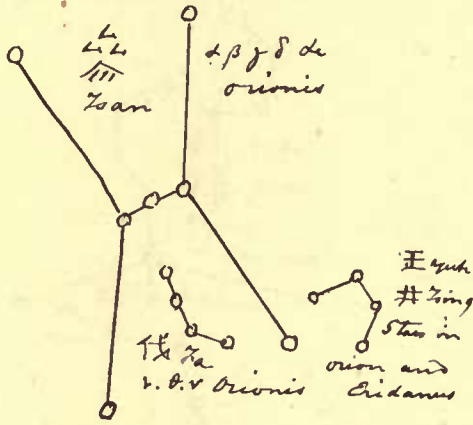 參
Tsan
α β γ δ &c
orionis
伐 Fa
ι. θ. ν Orionis
玉 yuh
井 Tsing
Stars in
orion and
Eridanus